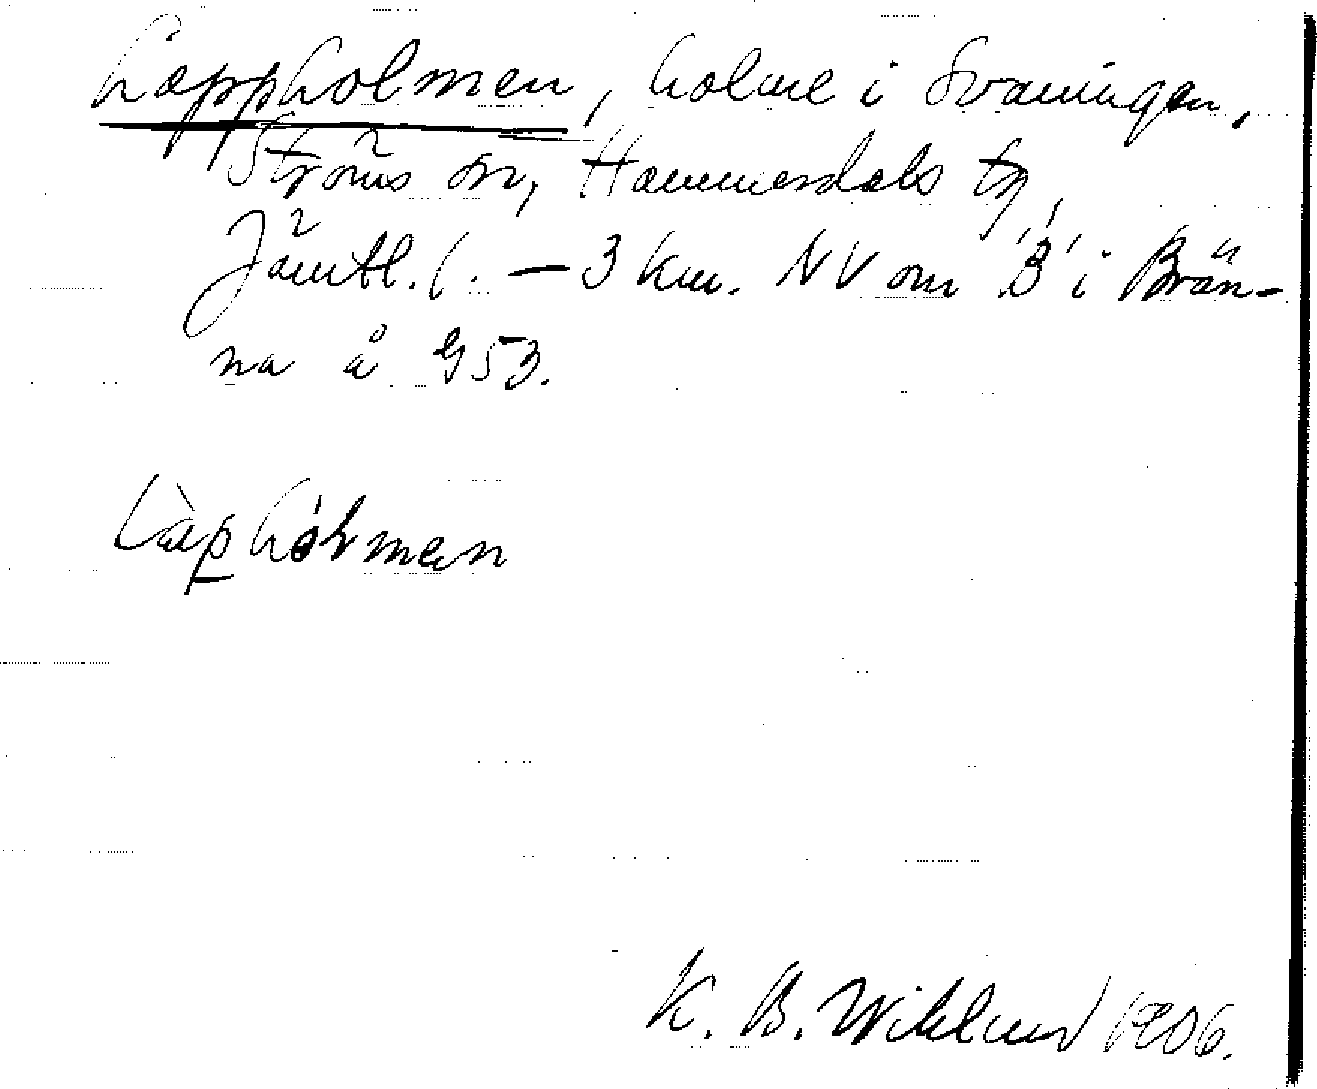 Lappholmen, holme i Svaningen,
Ströms sn, Hammerdals tg,
Jämtl. l. — 3 km. NV om 'B' i Brän-
na å G53.
Làphólmen
K. B. Wiklund 1906.